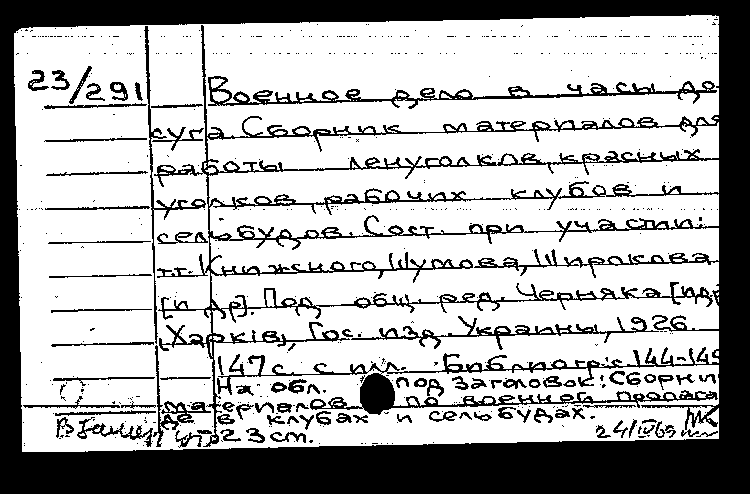 23/291 Военное дело в часы до-
суга. Сборник материалов для
работы ленуголков, красных
уголков, рабочих клубов и
сельбудов. Сост. при участии:
т.т. Книжского, Шумова, Широкова
[и др]. Под общ. ред. Черняка [и др
[Харкiв], Гос. изд. Украины, 1926.
147 с. с илл. Библиогр: с. 144-145
На обл. подзаголовок: Сборни
материалов по военной пропага
де в клубах и сельбудах.
23 см. 24/IV 69